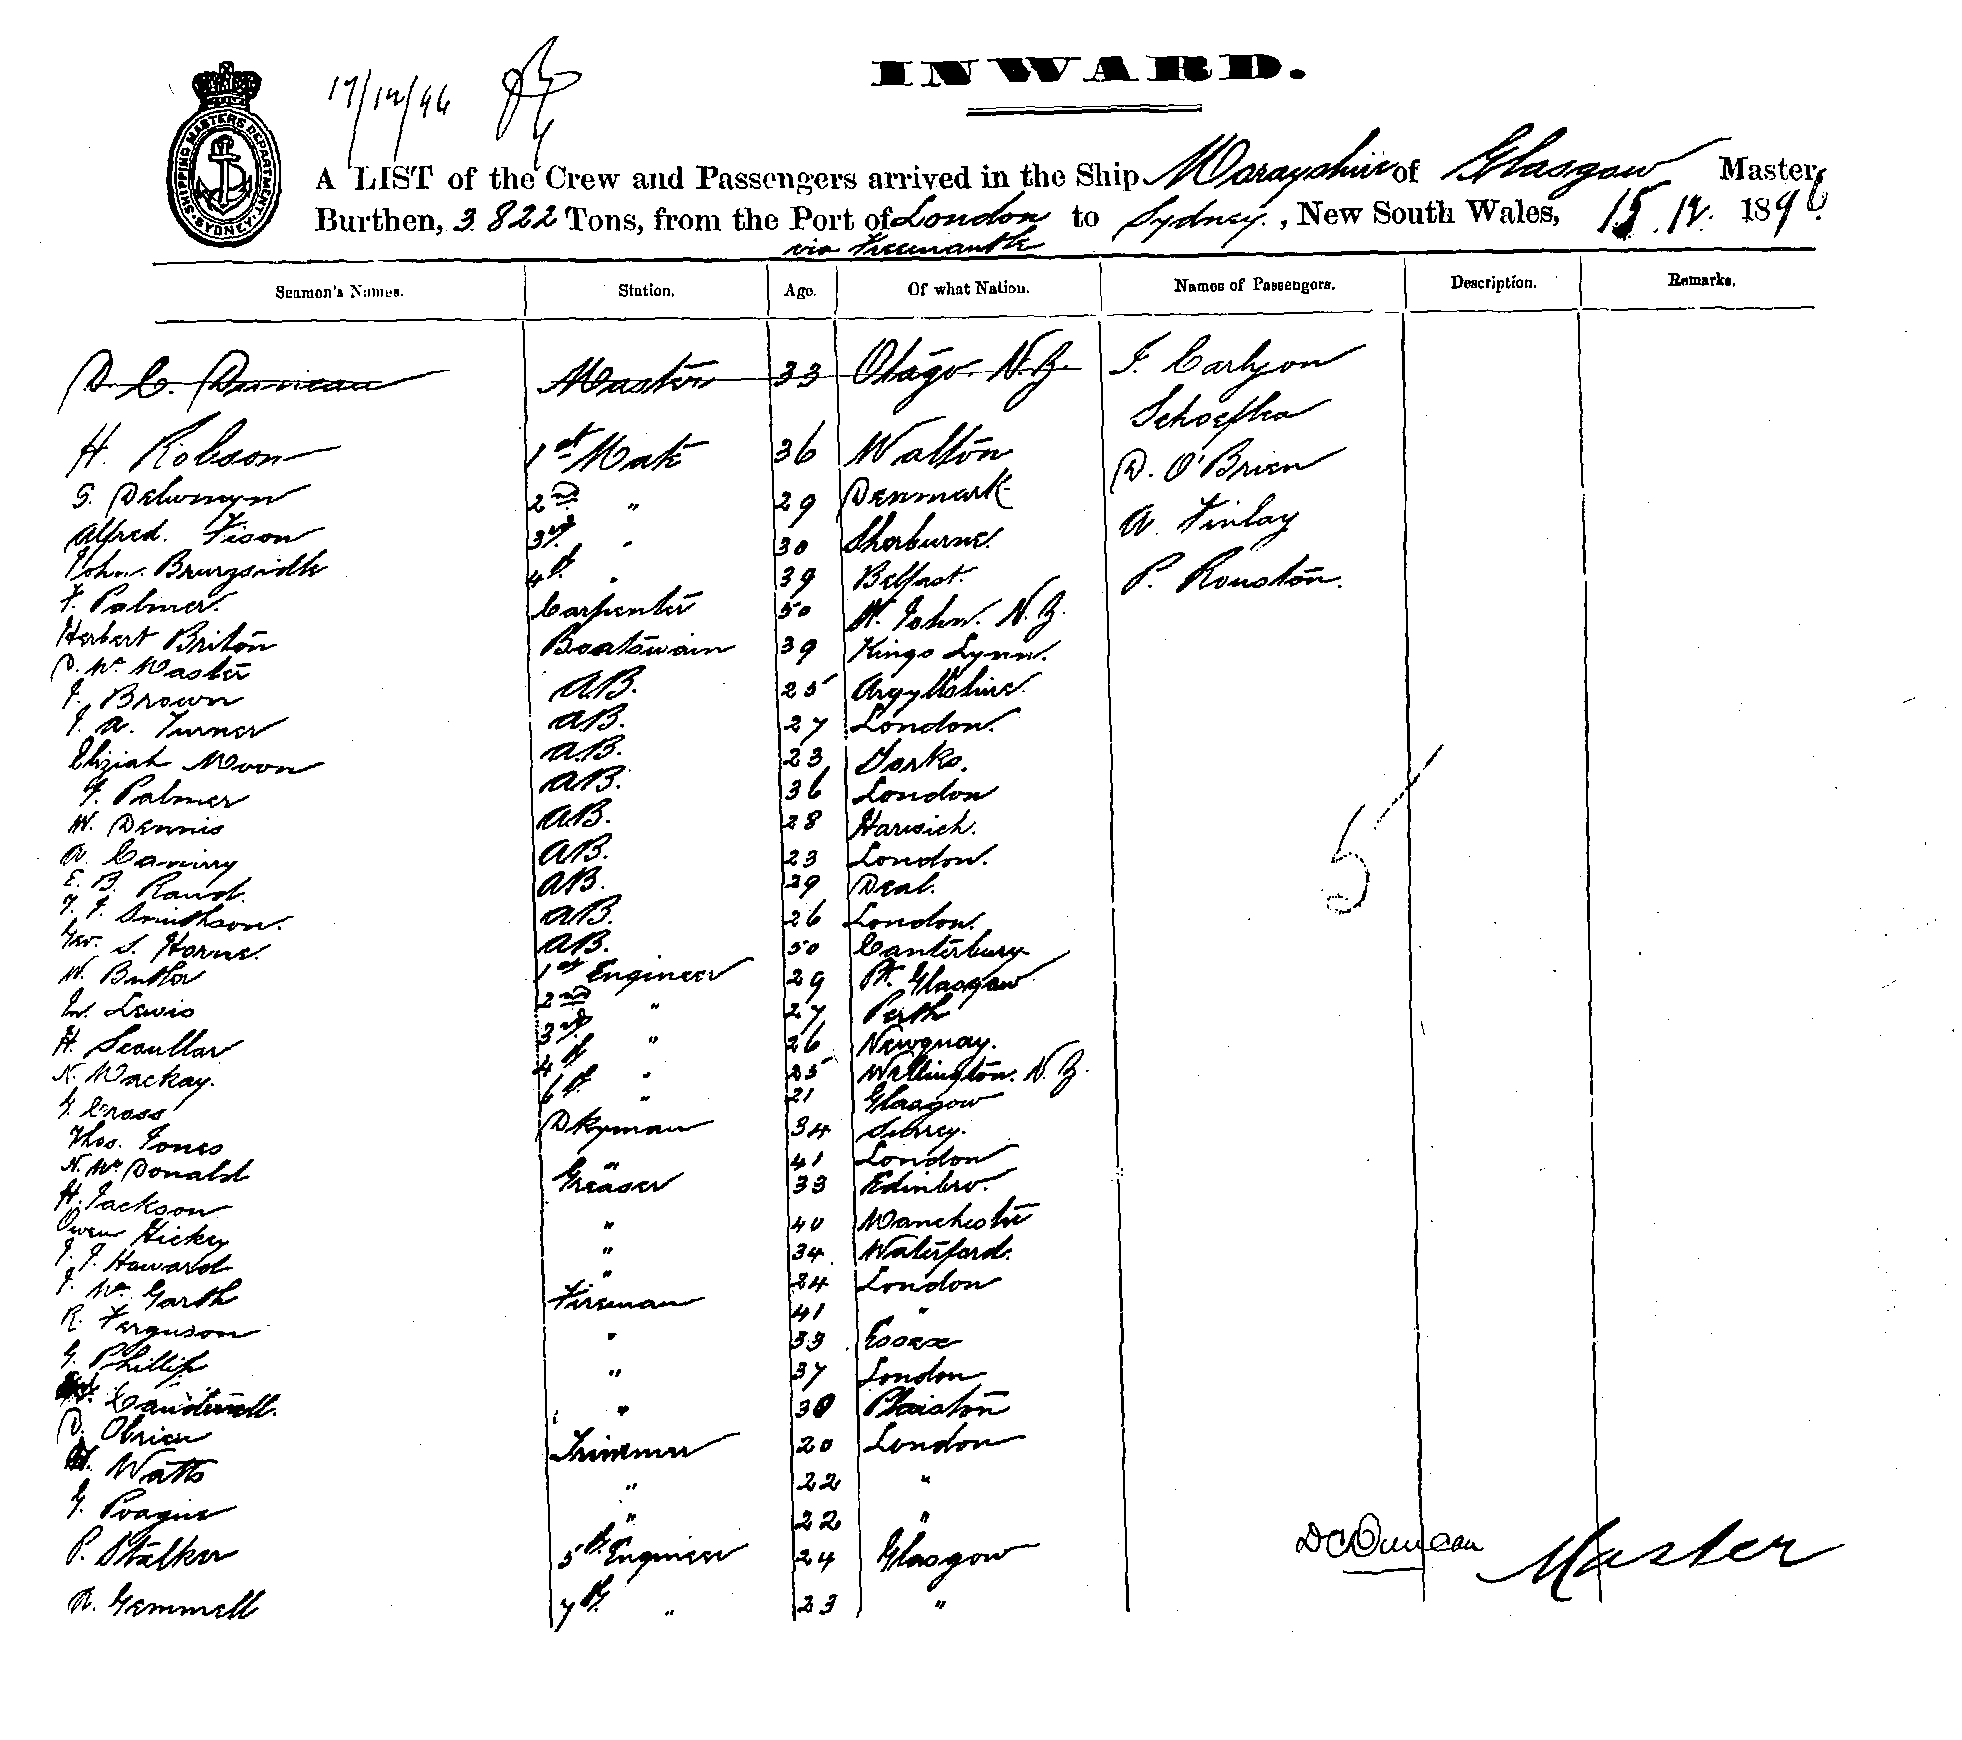 INWARD.
17/12/96
SHIPPING MASTERS DEPARTMENT
SYDNEY
A LIST of the Crew and Passengers arrived in the Ship Morayshire of Glasgow Master,
Burthen, 3822 Tons, from the Port of London to Sydney, New South Wales, 15.12.1896.
via Freemantle
Seamen's Names. Station. Age. Of what Nation. Names of Passengers. Description. Remarks.
D. C. Duncan Master 33 Otago N.Z. J. Carlyon
H. Robson 1st Mate 36 Walton
D. O'Brien
2nd " 29 Denmark
A. Finlay
Alfred. Fison 3rd " 30 Sherburne.
John 4th " 39 Belfast. P. Rouston.
F. Palmer. Carpenter 50 St. John. N.B.
Herbert Briton Boatswain 39 Kings Lynn.
D. McMaster A.B. 25 Argyllshire.
J. Brown A.B. 27 London.
J. A. Turner A.B. 23 Yorks.
Elijiah Moon A.B. 36 London
J. Palmer A.B. 28 Harwich.
W. Dennis A.B. 23 London.
A. A.B. 29 Deal.
E. B. Rand. A.B. 26 London.
Smithson. A.B. 50 Canterbury
Geo. S. Horne. 1st Engineer 29 Pt. Glasgow
W. Butler 2nd " 27 Perth
Lewis 3rd " 26 Newquay.
H. Scoullar 4th " 25 Wellington. N.Z.
N. Mackay. 6th " 21 Glasgow
G. Cross Dkyman 34 Surrey.
Thos. Jones " 41 London
N. McDonald Greaser 33 Edinbro.
H. Jackson " 40 Manchester
Owen Hickey " 34 Waterford.
J. J. Howard " 24 London
J. McGarth Fireman 41 "
R. Ferguson " 33 Essex
G. Phillip " 37 London
" 30 Plaistow
D. Obrien Trimmer 20 London
W. Watts " 22 "
G. " 22 "
P. Stalker 5th Engineer 24 Glasgow
R. Gemmell 7th " 23 "
5
D C Duncan Master